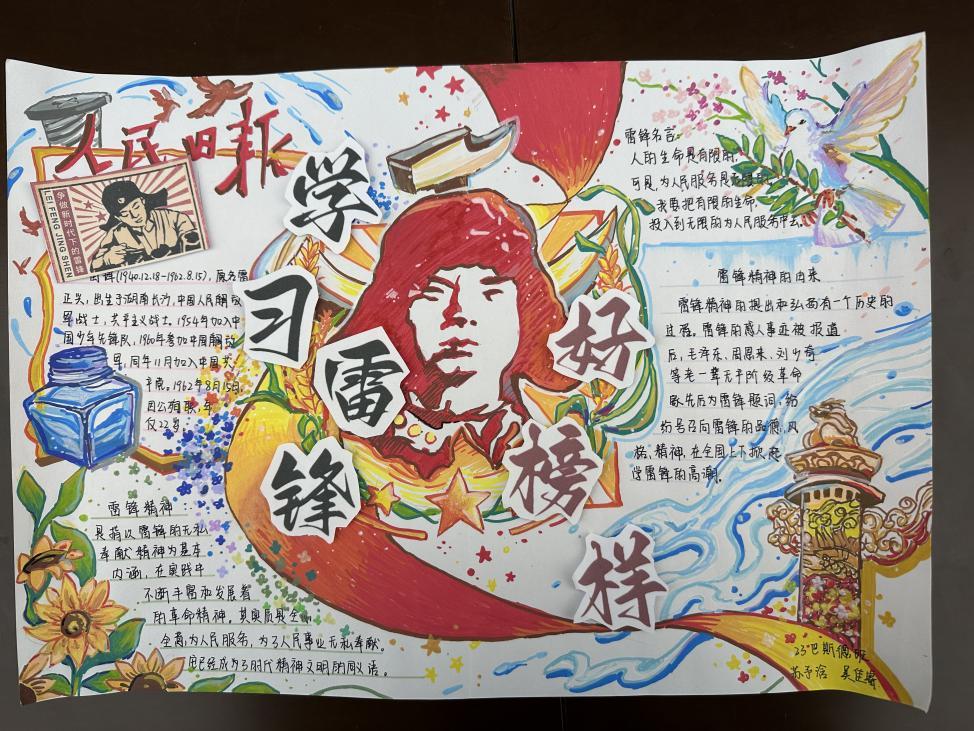 人民日报
争做新时代下的雷锋
LEI FENG JING SHEN
学
习
雷
锋
好
榜
样
雷锋(1940.12.18-1962.8.15),原名雷
正兴,出生于湖南长沙,中国人民解放
军战士,共产主义战士,1954年加入中
国少年先锋队,1960年参加中国解放
军,同年11月加入中国共
产党。1962年8月15日,
因公殉职,年
仅22岁。
雷锋精神:
是指以雷锋的无私
奉献精神为基本
内涵,在实践中
不断丰富和发展着
的革命精神,其实质是全
全意为人民服务,为了人民事业无私奉献。
它已经成为了时代精神文明的同义语。
雷锋名言:
人的生命是有限的,
可是,为人民服务是无限的,
我要把有限的生命,
投入到无限的为人民服务中去。
雷锋精神的由来
雷锋精神的提出和弘扬有一个历史的
过程。雷锋的感人事迹被报道
后,毛泽东、周恩来、刘少奇
等老一辈无产阶级革命
家先后为雷锋题词,纷
纷号召向雷锋的品德、风
格、精神,在全国上下掀起
学雷锋的高潮。
23巴斯德班
苏予涵 吴佳